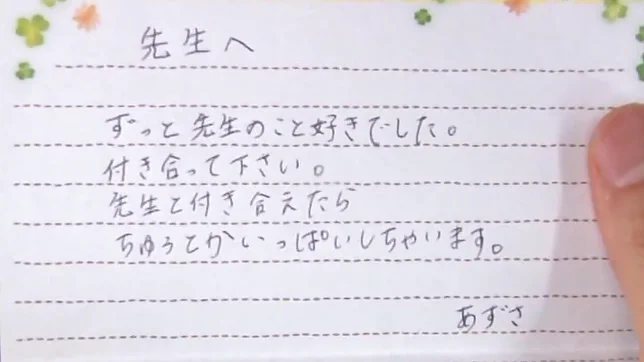 先生へ
ずっと先生のこと好きでした。
付き合って下さい。
先生と付き合えたら
ちゅうとかいっぱいしちゃいます。
あずさ